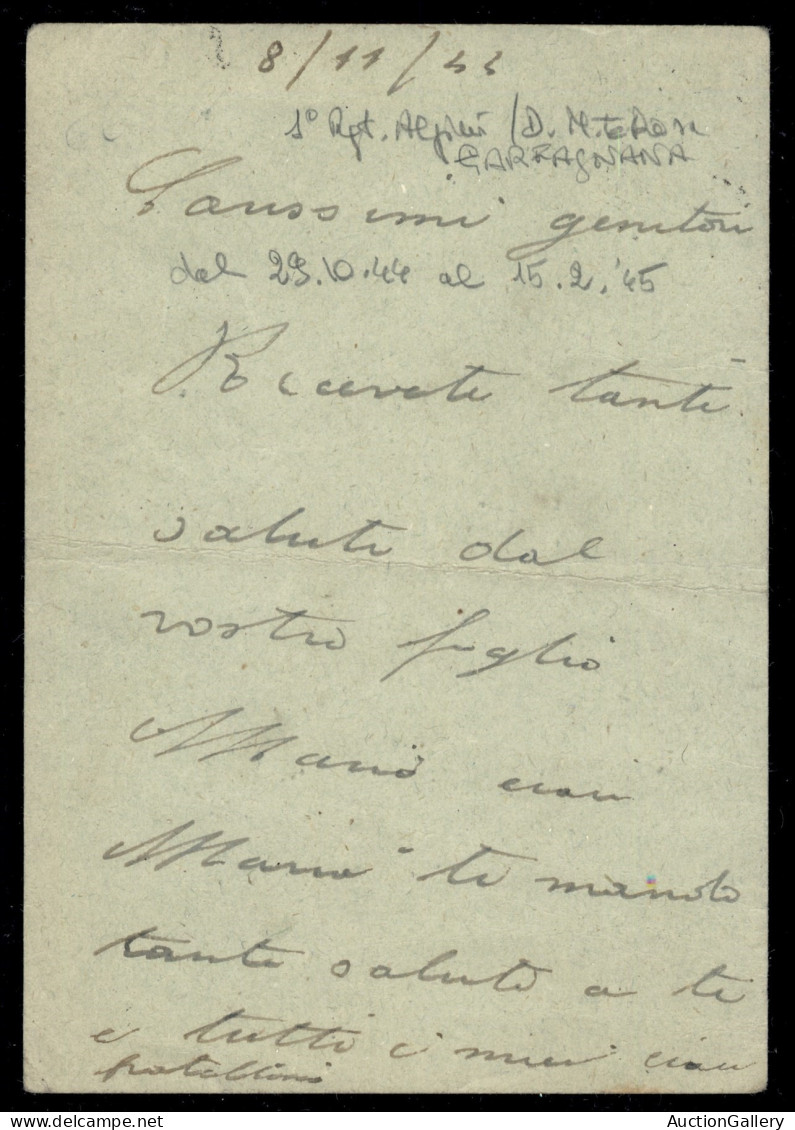 8/11/44
1° Rgt. Alpini / D. M.te Rosa
GARFAGNANA
Carissimi genitori
dal 29.10.44 al 15.2.'45
Ricevete tanti
saluti dal
vostro figlio
Mario ciau
Mario ti mando
tanti saluti a te
e tutti i miei ciau
fratellini
AuctionGallery